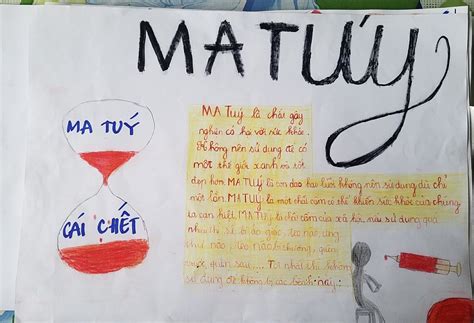 MA TUÝ
MA TUÝ
CÁI CHẾT
MA Tuý là chất gây
nghiện có hại với sức khỏe.
không nên sử dụng để có
một thế giới xanh và tốt
đẹp hơn MA TUÝ là con dao hai lưỡi không nên sử dụng dù chỉ
một lần MA TUÝ là một chất cấm có thể khiến sức khỏe của chúng
ta cạn kiệt MA TUÝ là chất cấm của xã hội, nếu sử dụng quá
nhiều thì sẽ bị ảo giác,
sử dụng để không bị các bệnh này.